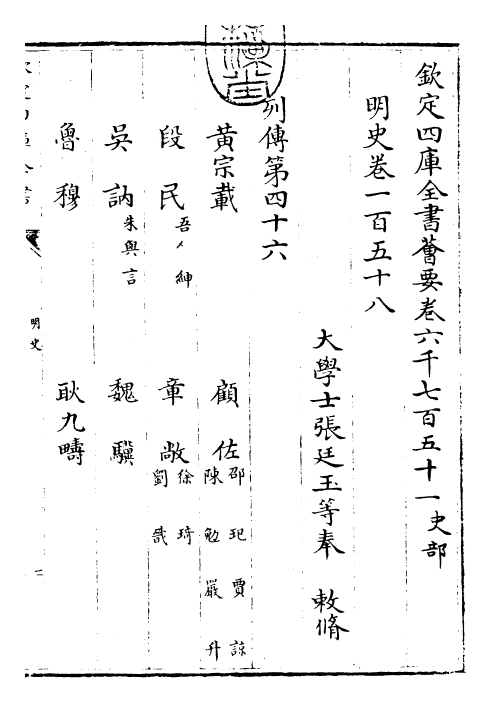 欽定四庫全書薈要卷六千七百五十一史部
明史卷一百五十八
大學士張廷玉等奉 敕脩
列傳第四十六
黃宗載
顧佐 邵玘 賈諒 陳勉 嚴升
段民 吾紳
章敞 徐琦 劉戩
吳訥 朱與言
魏驥
魯穆
耿九疇
明史